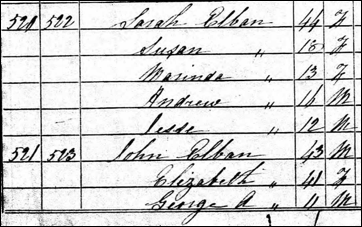 520 522 Sarah Elban 44 F
Susan " 18 F
Marinda " 13 F
Andrew " 16 M
Jesse " 12 M
521 523 John Elban 43 M
Elizabeth " 41 F
George A " 4 M